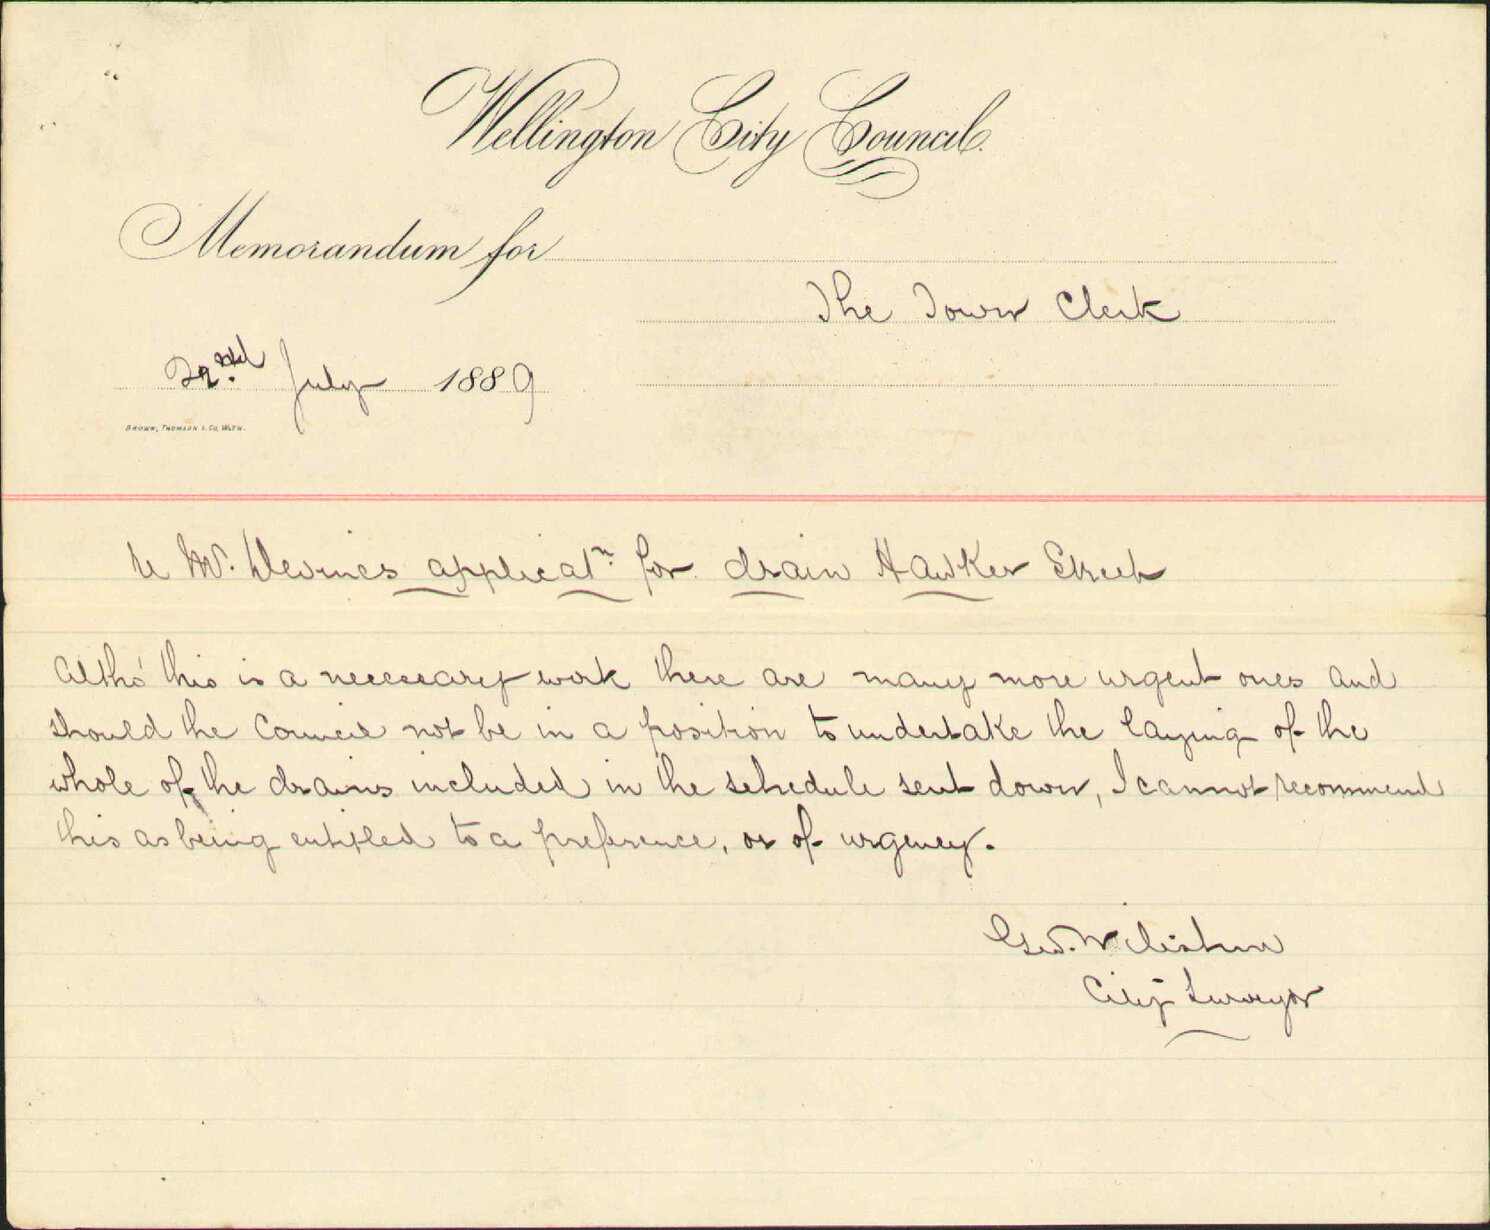 Wellington City Council.
Memorandum for
The Town Clerk
22nd. July 1889
BROWN, THOMSON & Co, WLTN.
re Mr. Devines applicatn. for drain Hawker Street
Altho' this is a necessary work there are many more urgent ones and
should the Council not be in a position to undertake the laying of the
whole of the drains included in the schedule sent down, I cannot recommend
this as being entitled to a preference, or of urgency.
Geo. Wiliston
City Surveyor